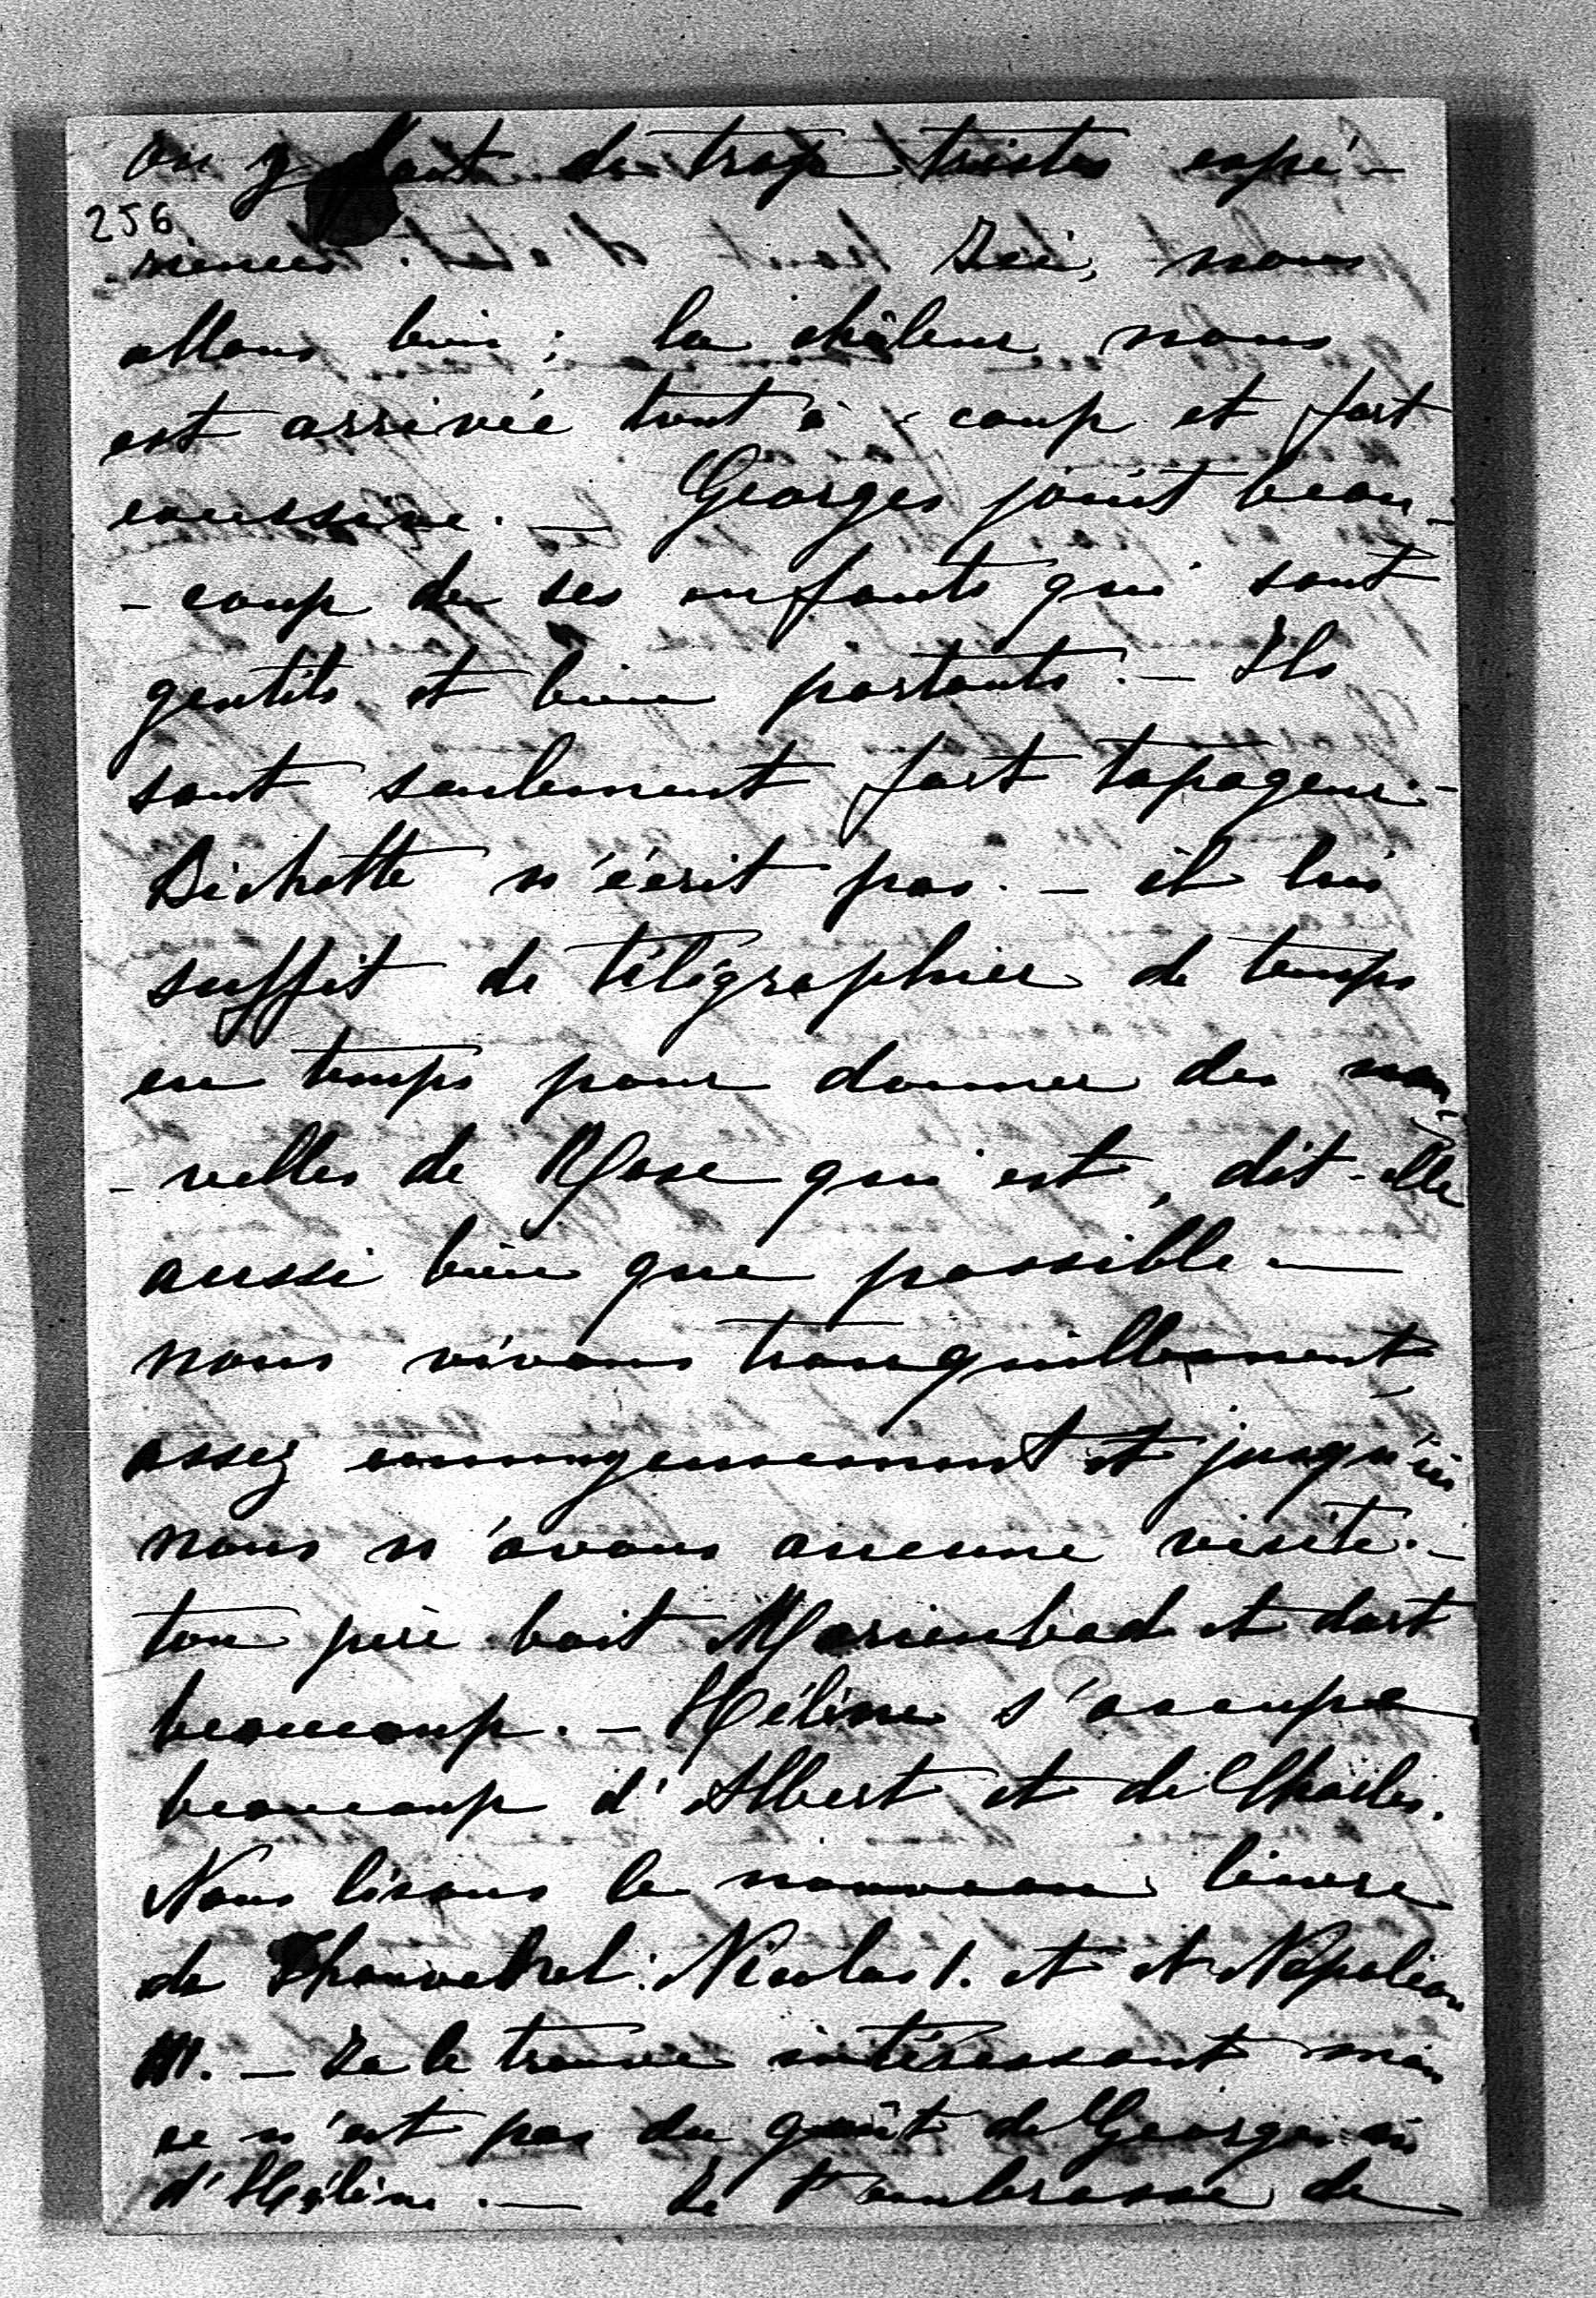 on y fait de trop tristes expé-
256
riences. Ici, nous
allons bien ; la chaleur nous
est arrivée tout à coup et fort
excessive. — Georges jouit beau-
- coup de ses enfants qui sont
gentils et bien portants. — Ils
sont seulement fort tapageurs -
Bichette n'écrit pas. — il lui
suffit de télégraphier de temps
en temps pour donner des nou-
- velles de Rose qui est, dit-elle
aussi bien que possible —
nous vivons tranquillement
assez et jusqu'ici
nous n'avons aucune visite. -
ton père boit Marienbad et dort
beaucoup. — Hélène s'occupe
beaucoup d'Albert et de Charles.
Nous lisons le nouveau livre
de Thouvenel : Nicolas I. et et Napoléon
III. — Je le trouve intéressant mais
ce n'est pas du goût de Georges ni
d'Hélène. — Je t'embrasse de